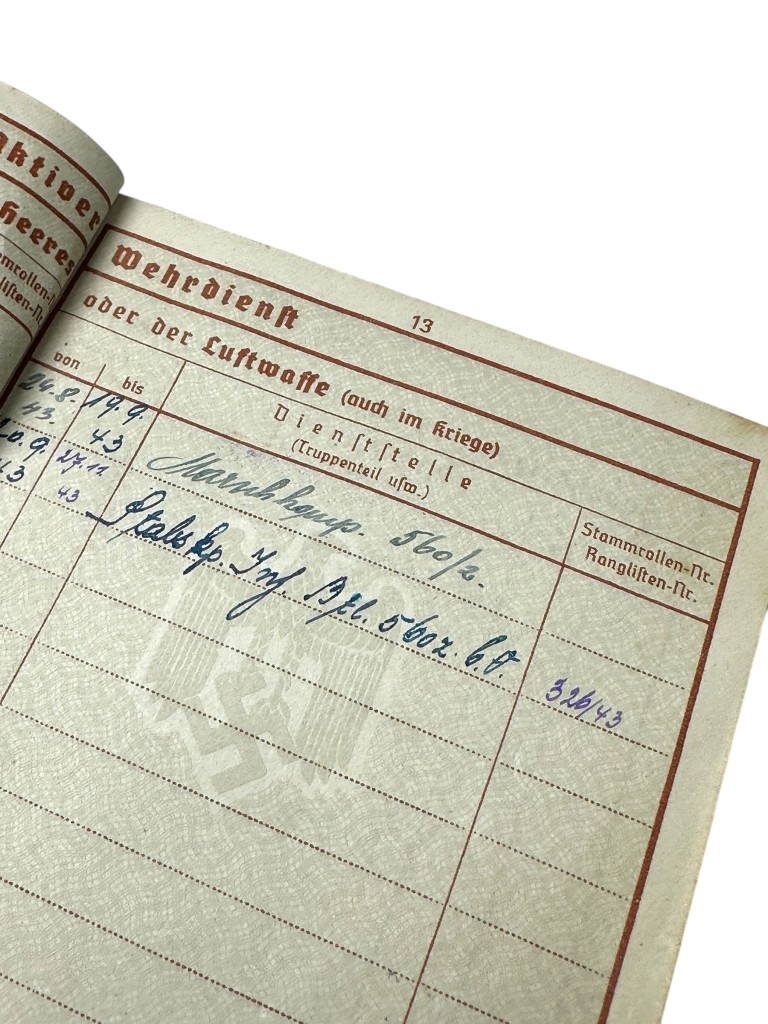 Aktiver
Heeres
Wehrdienst
13
oder der Luftwaffe (auch im Kriege)
von
bis
Dienststelle
(Truppenteil usw.)
Stammrollen-Nr.
Ranglisten-Nr.
24.8. 19.9.
43. 43
Marschkomp. 560/2.
27.12
43 43
Stabskp. Inf. Btl. 560 z. b. V.
326/43